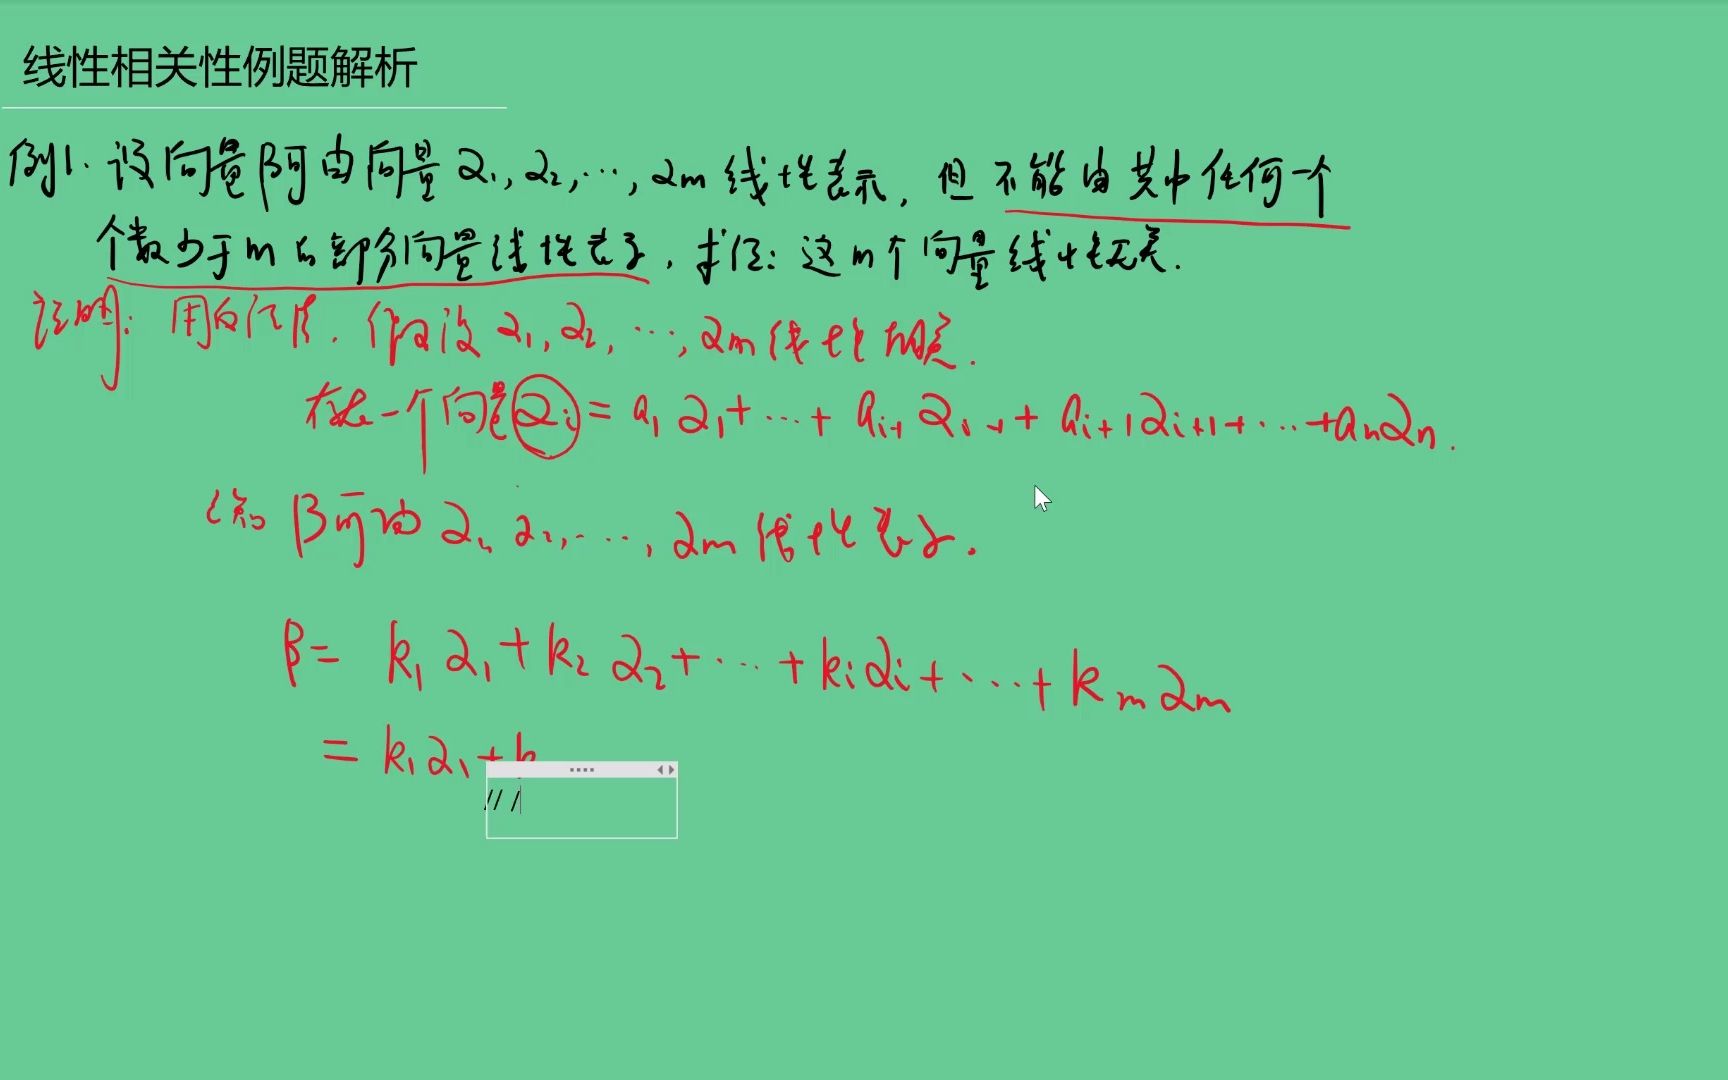 线性相关性例题解析
例1. 设向量β可由向量α₁, α₂, …, αm 线性表示, 但不能由其中任何一个
个数少于m的部分向量线性表示, 求证: 这m个向量线性无关.
证明: 用反证法. 假设 α₁, α₂, …, αm 线性相关.
存在一个向量 αi = a₁α₁+…+ai-1αi-1+ai+1αi+1+…+anαn.
β可由 α₁, α₂, …, αm 线性表示.
β= k₁α₁+k₂α₂+…+kiαi+…+kmαm
= k₁α₁+k
// /